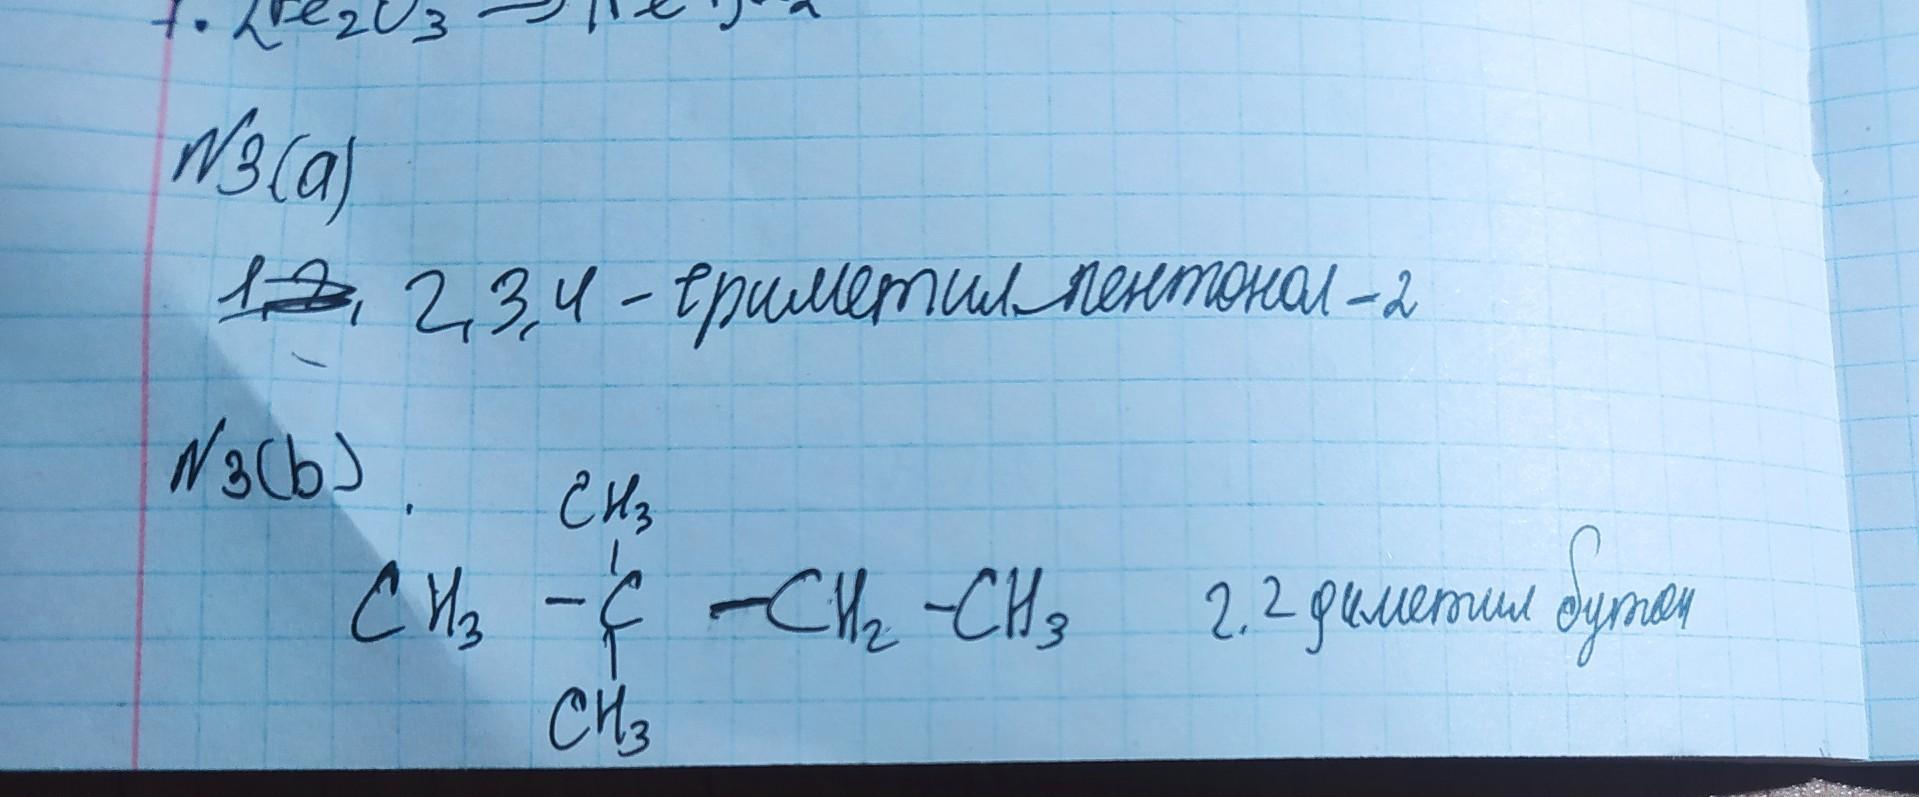 2Fe2O3 →
N3(a)
2,3,4 - триметил пентонол-2
N3(b)
CH3
CH3 - C - CH2 - CH3 2.2 диметил бутан
CH3